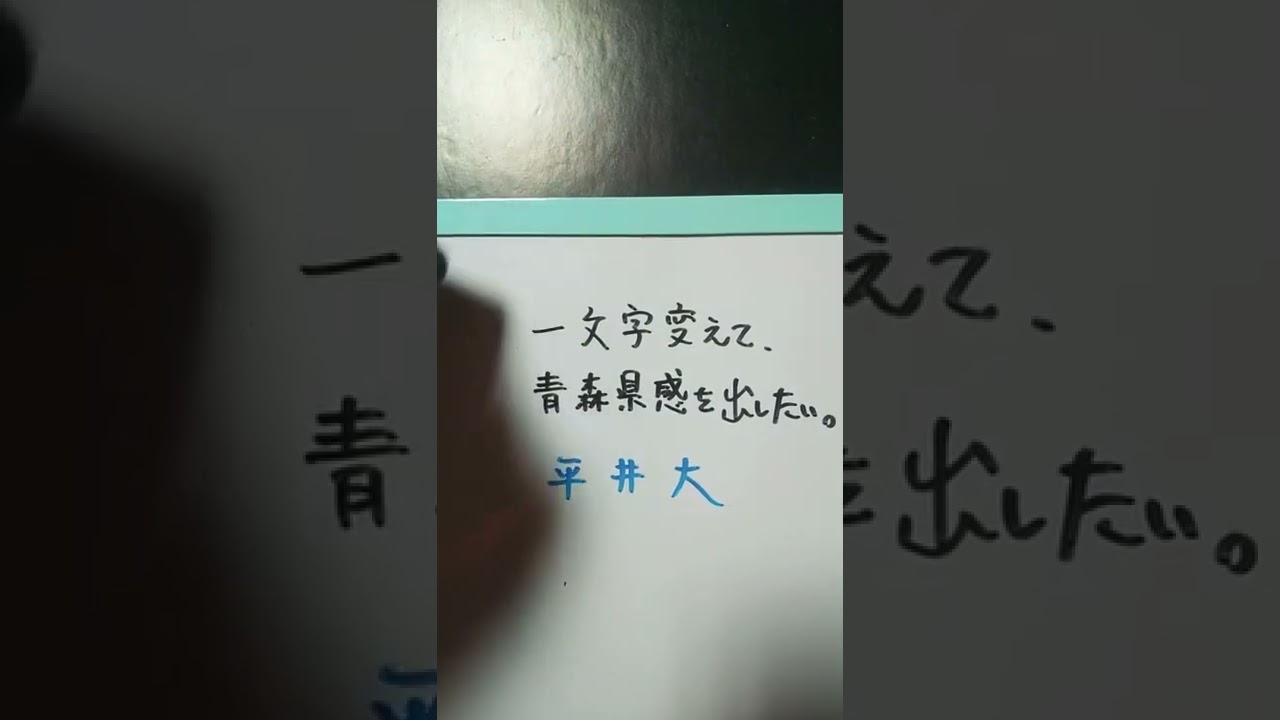 一文字変えて、
青森県感を出したい。
平井大